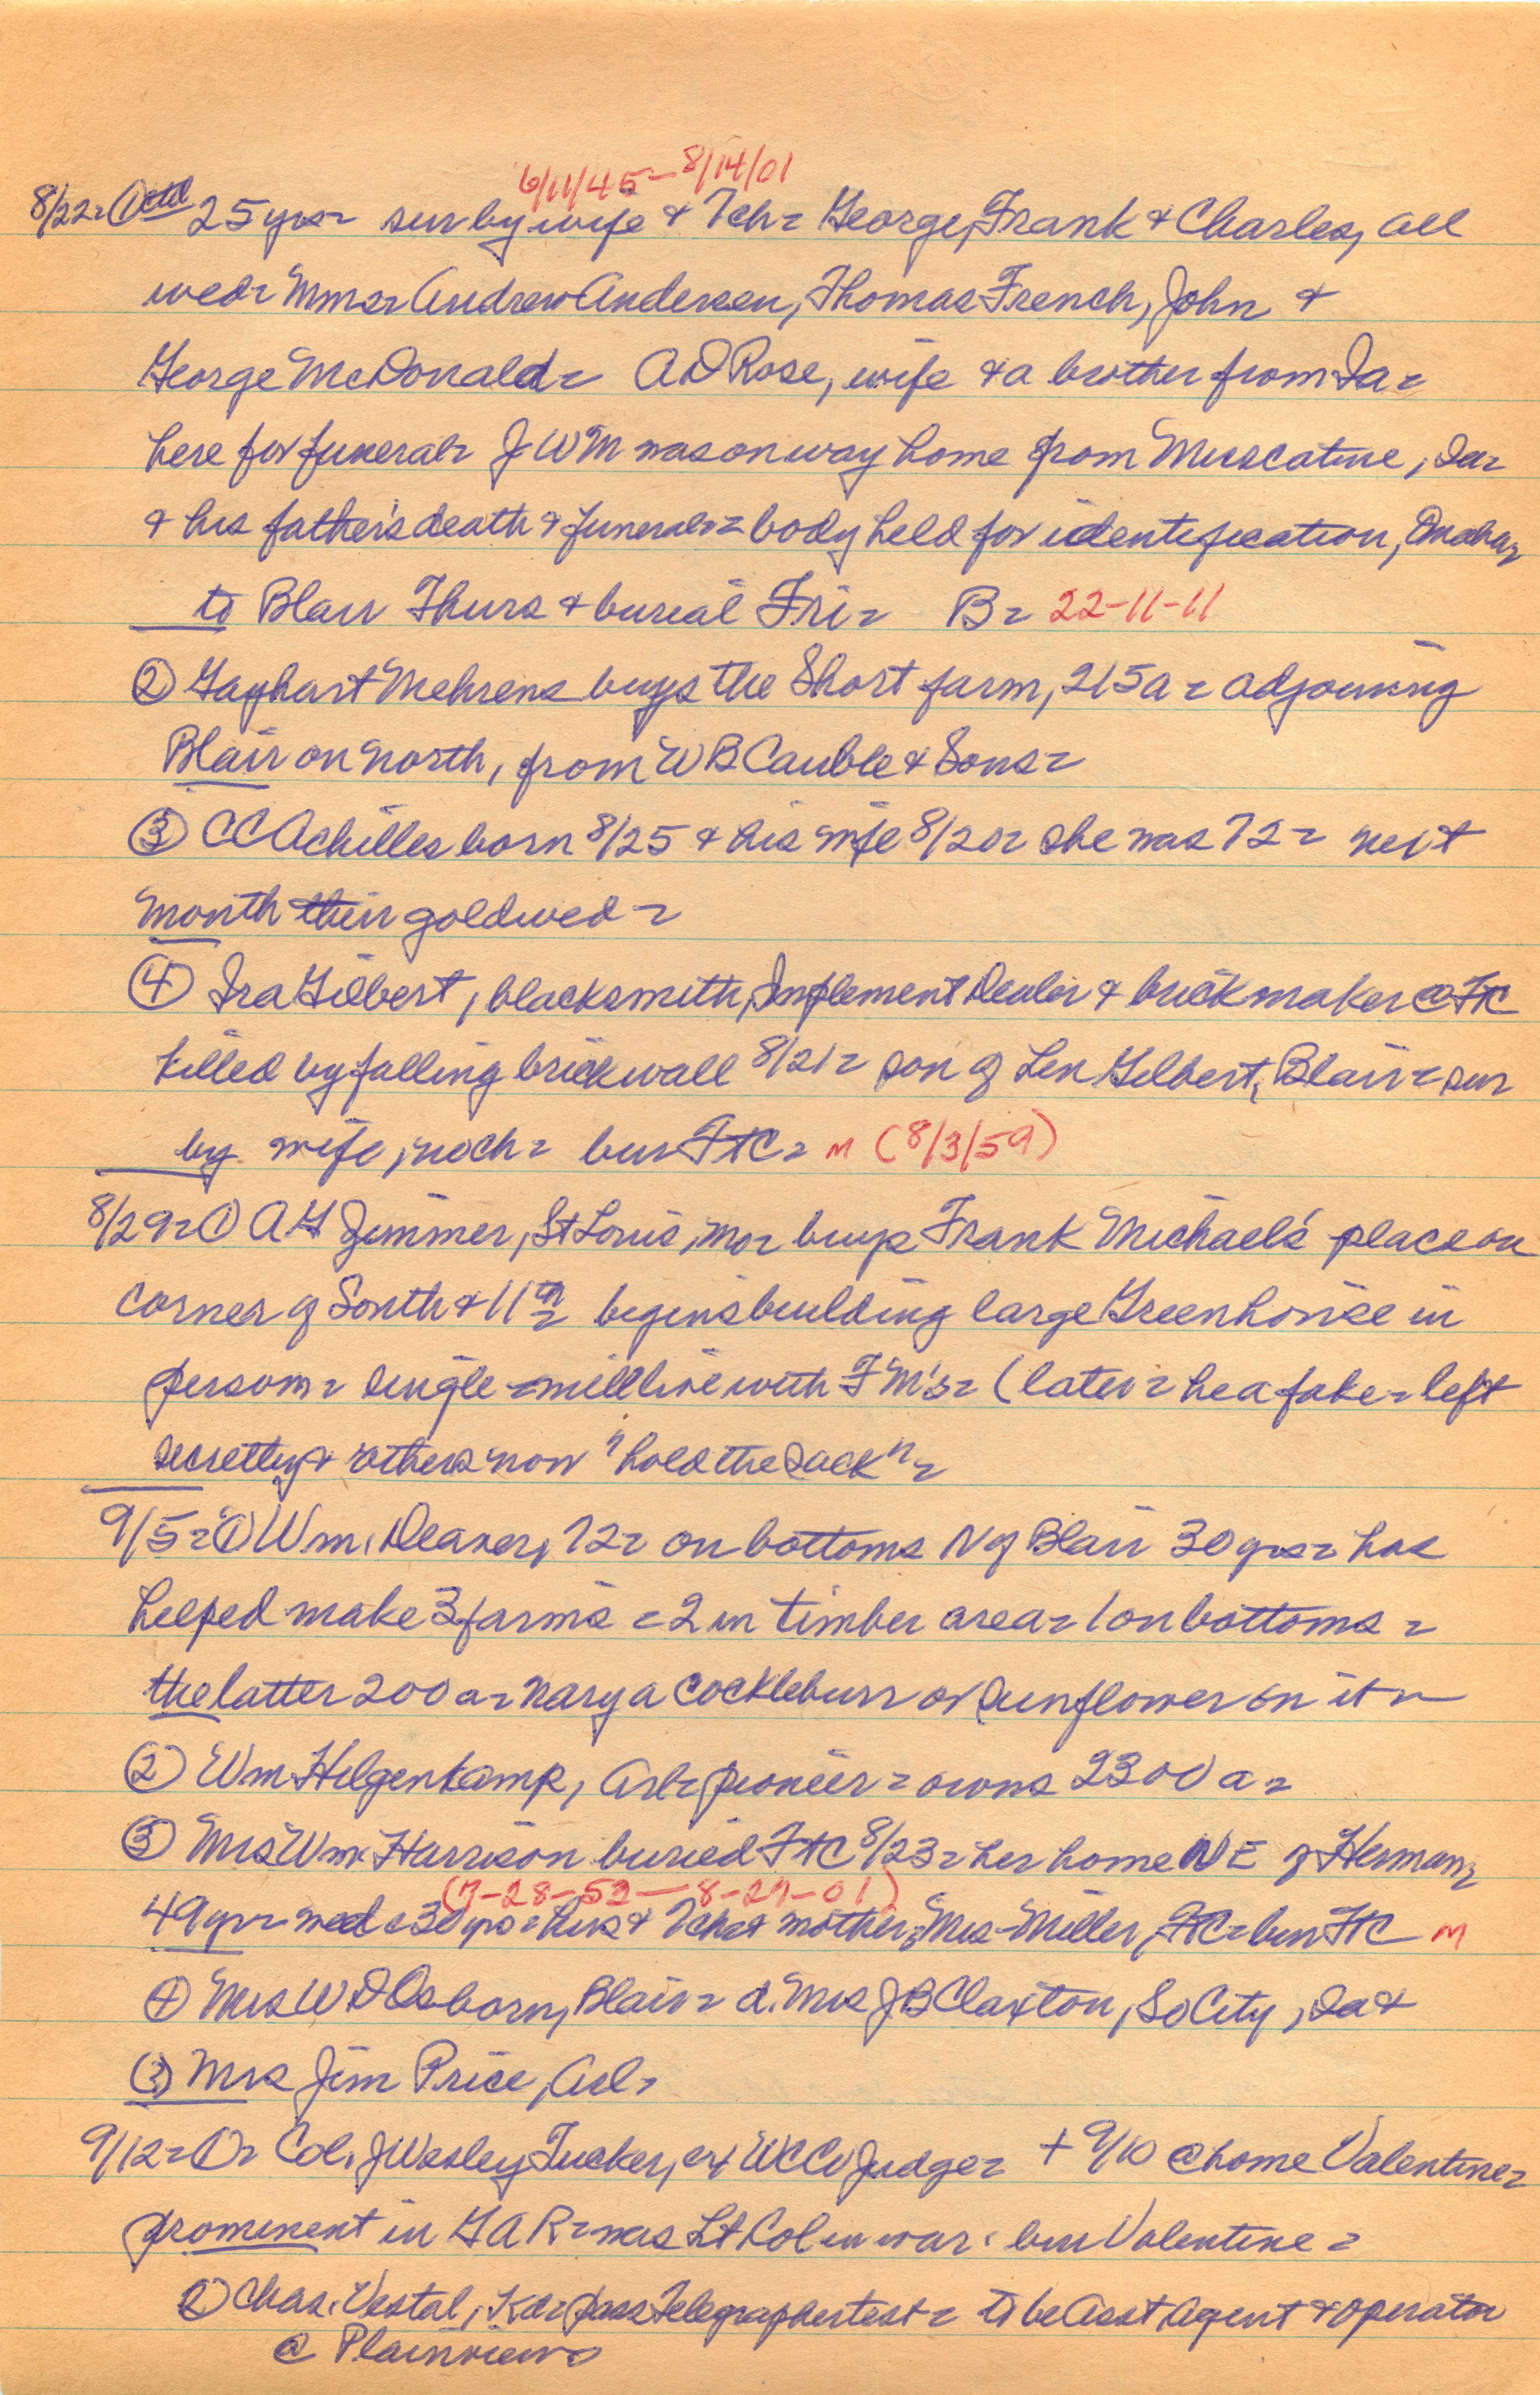 6/11/45 - 8/14/01
8/22 = ① ctd 25 yrs = sur by wife & 7 ch = George, Frank & Charles, all
wed = Mmes Andrew Andersen, Thomas French, John &
George McDonald = A D Rose, wife & a brother from Ia =
here for funeral = J W M was on way home from Muscatine, Ia =
& his father's death & funeral = body held for identification, Omaha =
to Blair Thurs & burial Fri = B = 22-11-11
② Gayhart Mehrens buys the Short farm, 215 a = adjoining
Blair on north, from W B Cauble & Sons =
③ C C Achilles born 8/25 & his wife 8/20 = she was 72 = next
month their gold wed =
④ Ira Gilbert, blacksmith, Implement Dealer & brick maker @ FtC
killed by falling brick wall 8/21 = son of Len Gilbert, Blair = sur
by wife, no ch = bur FtC = M (8/3/59)
8/29 = ① A G Zimmer, St Louis, Mo = buys Frank Michael's place on
corner of South & 11th = begins building large Greenhouse in
person = single = will live with FM's = (later = he a fake = left
secretly & others now "hold the sack" =
9/5 = ① Wm. Deaver, 72 = on bottoms N of Blair 30 yrs = has
helped make 3 farms = 2 in timber area = 1 on bottoms =
the latter 200 a = nary a cockleburr or sunflower on it =
② Wm Hilgenkamp, Arl = pioneer = owns 2300 a =
③ Mrs Wm. Harrison buried FtC 8/23 = her home NE of Herman =
(7-28-52 - 8-27-01)
49 yr = wed c 30 yrs = hus & 7 ch & mother, Mrs Miller, FtC = bur FtC M
④ Mrs W D Osborn, Blair = d. Mrs J B Claxton, So City, Ia &
(3) Mrs Jim Price, Arl =
9/12 = ① = Col. J Wesley Tucker, ex WCo Judge = + 9/10 @ home Valentine =
prominent in G A R = was Lt Col in war = bur Valentine =
② Chas. Vestal, K = pass Telegrapher test = to be Asst Agent & operator
@ Plainview =